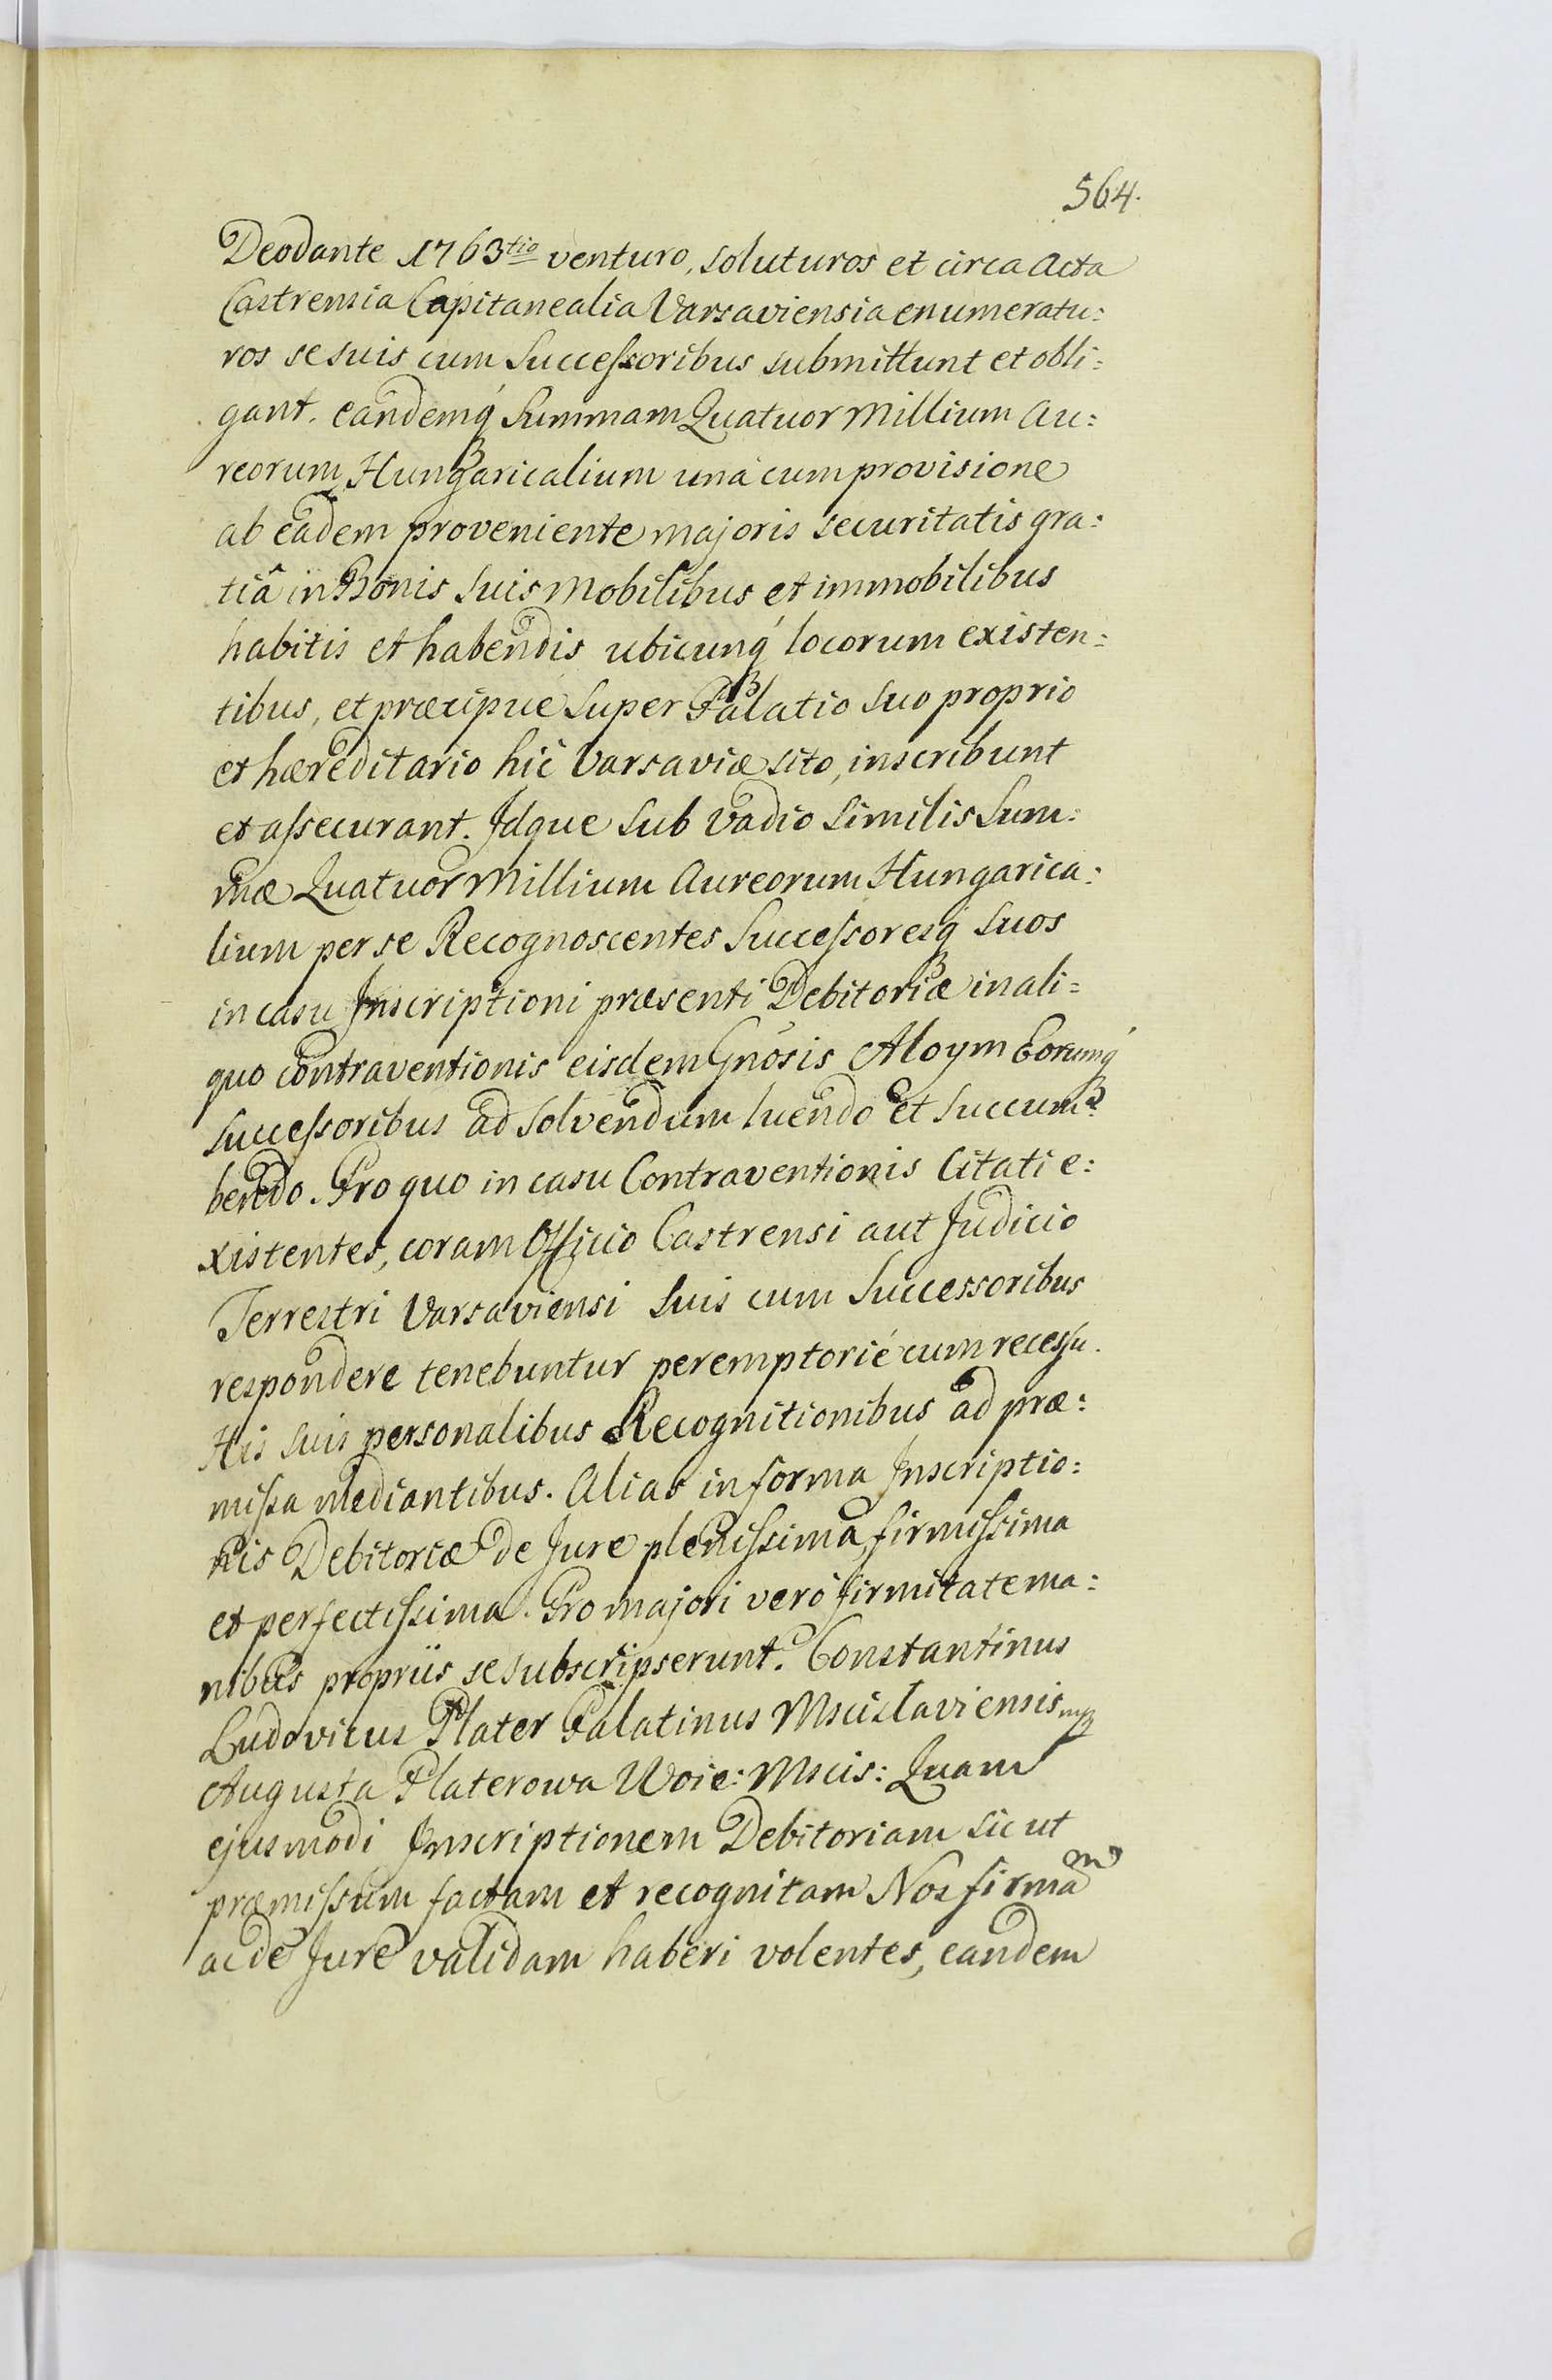 564.
Deodante 1763tio venturo, soluturos et circa Acta
Castrensia Capitanealia Varsaviensia enumeratu:
ros se suis cum Successoribus submittunt et obli:
gant. eandemq́ Summam Quatuor Millium Au:
reorum Hungaricalium unà cum provisione
ab eadem proveniente majoris securitatis gra:
tiâ in Bonis suis Mobilibus et immobilibus
habitis et habendis ubicunq́ locorum existen:
tibus, et præcipuè super Palatio suo proprio
et hæreditario hic Varsaviæ sito, inscribunt
et assecurant. Idque sub Vadio similis Sum:
mæ Quatuor Millium Aureorum Hungarica:
lium per se Recognoscentes Successoresq́ suos
in casu Inscriptioni præsenti Debitoriæ in ali:
quo contraventionis eisdem Gnôsis Aloym Eorumq́
Successoribus ad solvendum luendo et succum:
bendo. Pro quo in casu Contraventionis Citati e:
xistentes, coram Officio Castrensi aut Judicio
Terrestri Varsaviensi suis cum Successoribus
respondere tenebuntur peremptoriè cum recessu.
His suis personalibus Recognitionibus ad præ:
missa mediantibus. Alias in forma Inscriptio:
nis Debitoriæ de Jure plenissima, firmissima
et perfectissima. Pro majori verò firmitate ma:
nibus propriis se subscripserunt. Constantinus
Ludovicus Plater Palatinus Mscislaviensis mp
Augusta Platerowa Woie: Mscis: Quam
ejusmodi Inscriptionem Debitoriam sic ut
præmissum factam et recognitam Nos firmam
ac de Jure validam haberi volentes, eandem